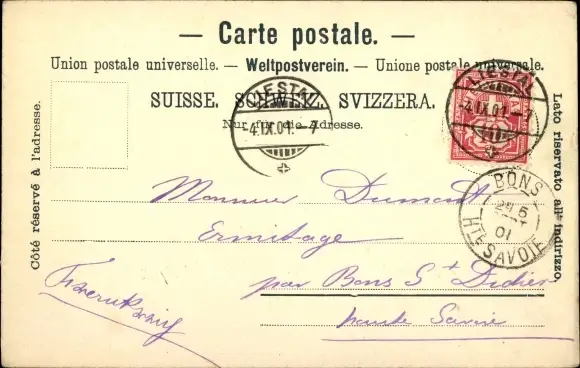 — Carte postale. —
Union postale universelle. — Weltpostverein. — Unione postale universale.
SUISSE. SCHWEIZ. SVIZZERA.
Nur für die Adresse.
Côté réservé à l'adresse.
Lato riservato all' indirizzo.
LIESTAL
-4.IX.01.-7
LIESTAL
-4.IX.01.-7
BONS
5
01
HTE SAVOIE
Monsieur Dumont
Ermitage
par Bons St Didier
haute Savoie